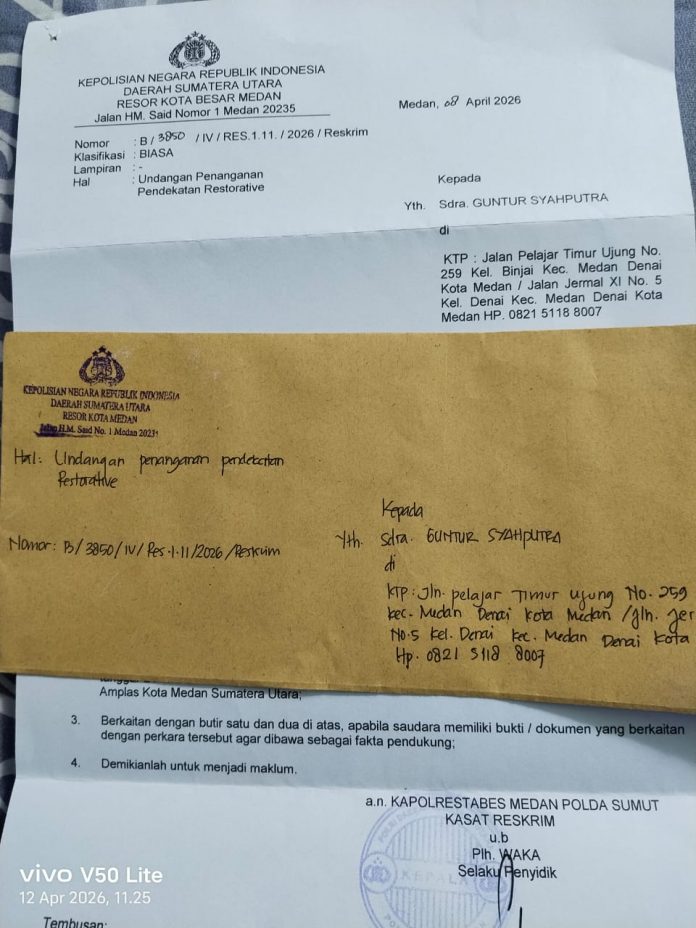 KEPOLISIAN NEGARA REPUBLIK INDONESIA
DAERAH SUMATERA UTARA
RESOR KOTA BESAR MEDAN
Jalan HM. Said Nomor 1 Medan 20235
Medan, 08 April 2026
Nomor : B / 3850 / IV / RES.1.11. / 2026 / Reskrim
Klasifikasi : BIASA
Lampiran : -
Hal : Undangan Penanganan
Pendekatan Restorative
Kepada
Yth. Sdra. GUNTUR SYAHPUTRA
di
KTP : Jalan Pelajar Timur Ujung No.
259 Kel. Binjai Kec. Medan Denai
Kota Medan / Jalan Jermal XI No. 5
Kel. Denai Kec. Medan Denai Kota
Medan HP. 0821 5118 8007
KEPOLISIAN NEGARA REPUBLIK INDONESIA
DAERAH SUMATERA UTARA
RESOR KOTA MEDAN
Jalan H.M. Said No. 1 Medan 20235
Hal : Undangan penanganan pendekatan
Restorative
Kepada
Yth. Sdra. GUNTUR SYAHPUTRA
di
Nomor : B/3850/IV/Res.1.11/2026/Reskrim
KTP : Jln. pelajar Timur ujung No. 259
kec. Medan Denai Kota Medan /Jln. Jer
No.5 Kel. Denai kec. Medan Denai Kota
Hp. 0821 5118 8007
Amplas Kota Medan Sumatera Utara;
3. Berkaitan dengan butir satu dan dua di atas, apabila saudara memiliki bukti / dokumen yang berkaitan
dengan perkara tersebut agar dibawa sebagai fakta pendukung;
4. Demikianlah untuk menjadi maklum.
a.n. KAPOLRESTABES MEDAN POLDA SUMUT
KASAT RESKRIM
u.b
Plh. WAKA
Selaku Penyidik
KEPALA
Tembusan:
vivo V50 Lite
12 Apr 2026, 11.25